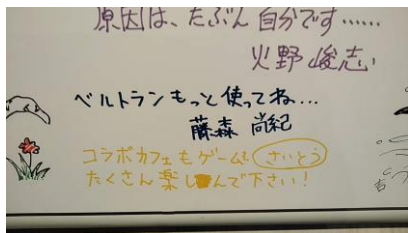 原因は、たぶん自分です……
火野峻志
ベルトランもっと使ってね…
藤森 尚紀
コラボカフェもゲームも さいとう
たくさん楽しんで下さい!